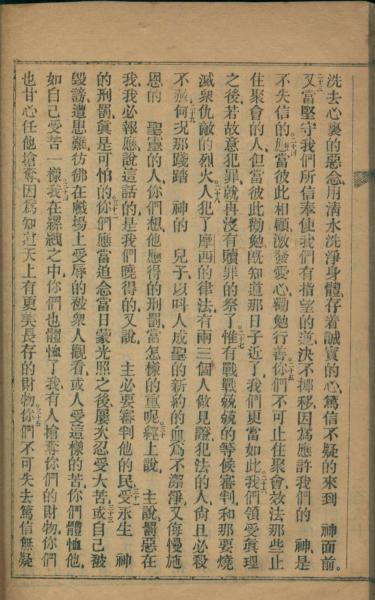 洗去心裏的惡念、用清水洗淨身體、存着誠實的心、篤信不疑的來到　神面前。
二十三又當堅守我們所信奉使我們有指望的道、決不挪移、因爲應許我們的　神、是
不失信的。二十四應當彼此相顧、激發愛心、勸勉行善。二十五你們不可止住聚會、效法那些止
住聚會的人、但當彼此勸勉、旣知道那日子近了、我們更當如此。二十六我們領受眞理
之後、若故意犯罪、就再沒有贖罪的祭了。二十七惟有戰戰兢兢的等候審判、和那要燒
滅衆仇敵的烈火。二十八人犯了摩西的律法、有兩三個人做見證、犯法的人尙且必殺
不赦。二十九何況那踐踏　神的　兒子、以叫人成聖的新約的血爲不潔淨、又侮慢施
恩的　聖靈的人、你們想他應得的刑罰、當怎樣的重呢。三十經上說、主說、罰惡在
我、我必報應、說這話的是我們曉得的、又說、　主必要審判他的民。三十一受永生　神
的刑罰、眞是可怕的。三十二你們應當追念當日蒙光照之後、屢次忍受大苦。三十三或自己被
毀謗、遭患難、彷彿在戲場上受辱的、被衆人觀看、或人受這樣的苦、你們體恤他、
如自己受苦一樣。三十四我在縲絏之中、你們也體恤了我、有人搶奪你們的財物、你們
也甘心任他搶奪、因爲知道天上有更美長存的財物。三十五你們不可失去篤信無疑